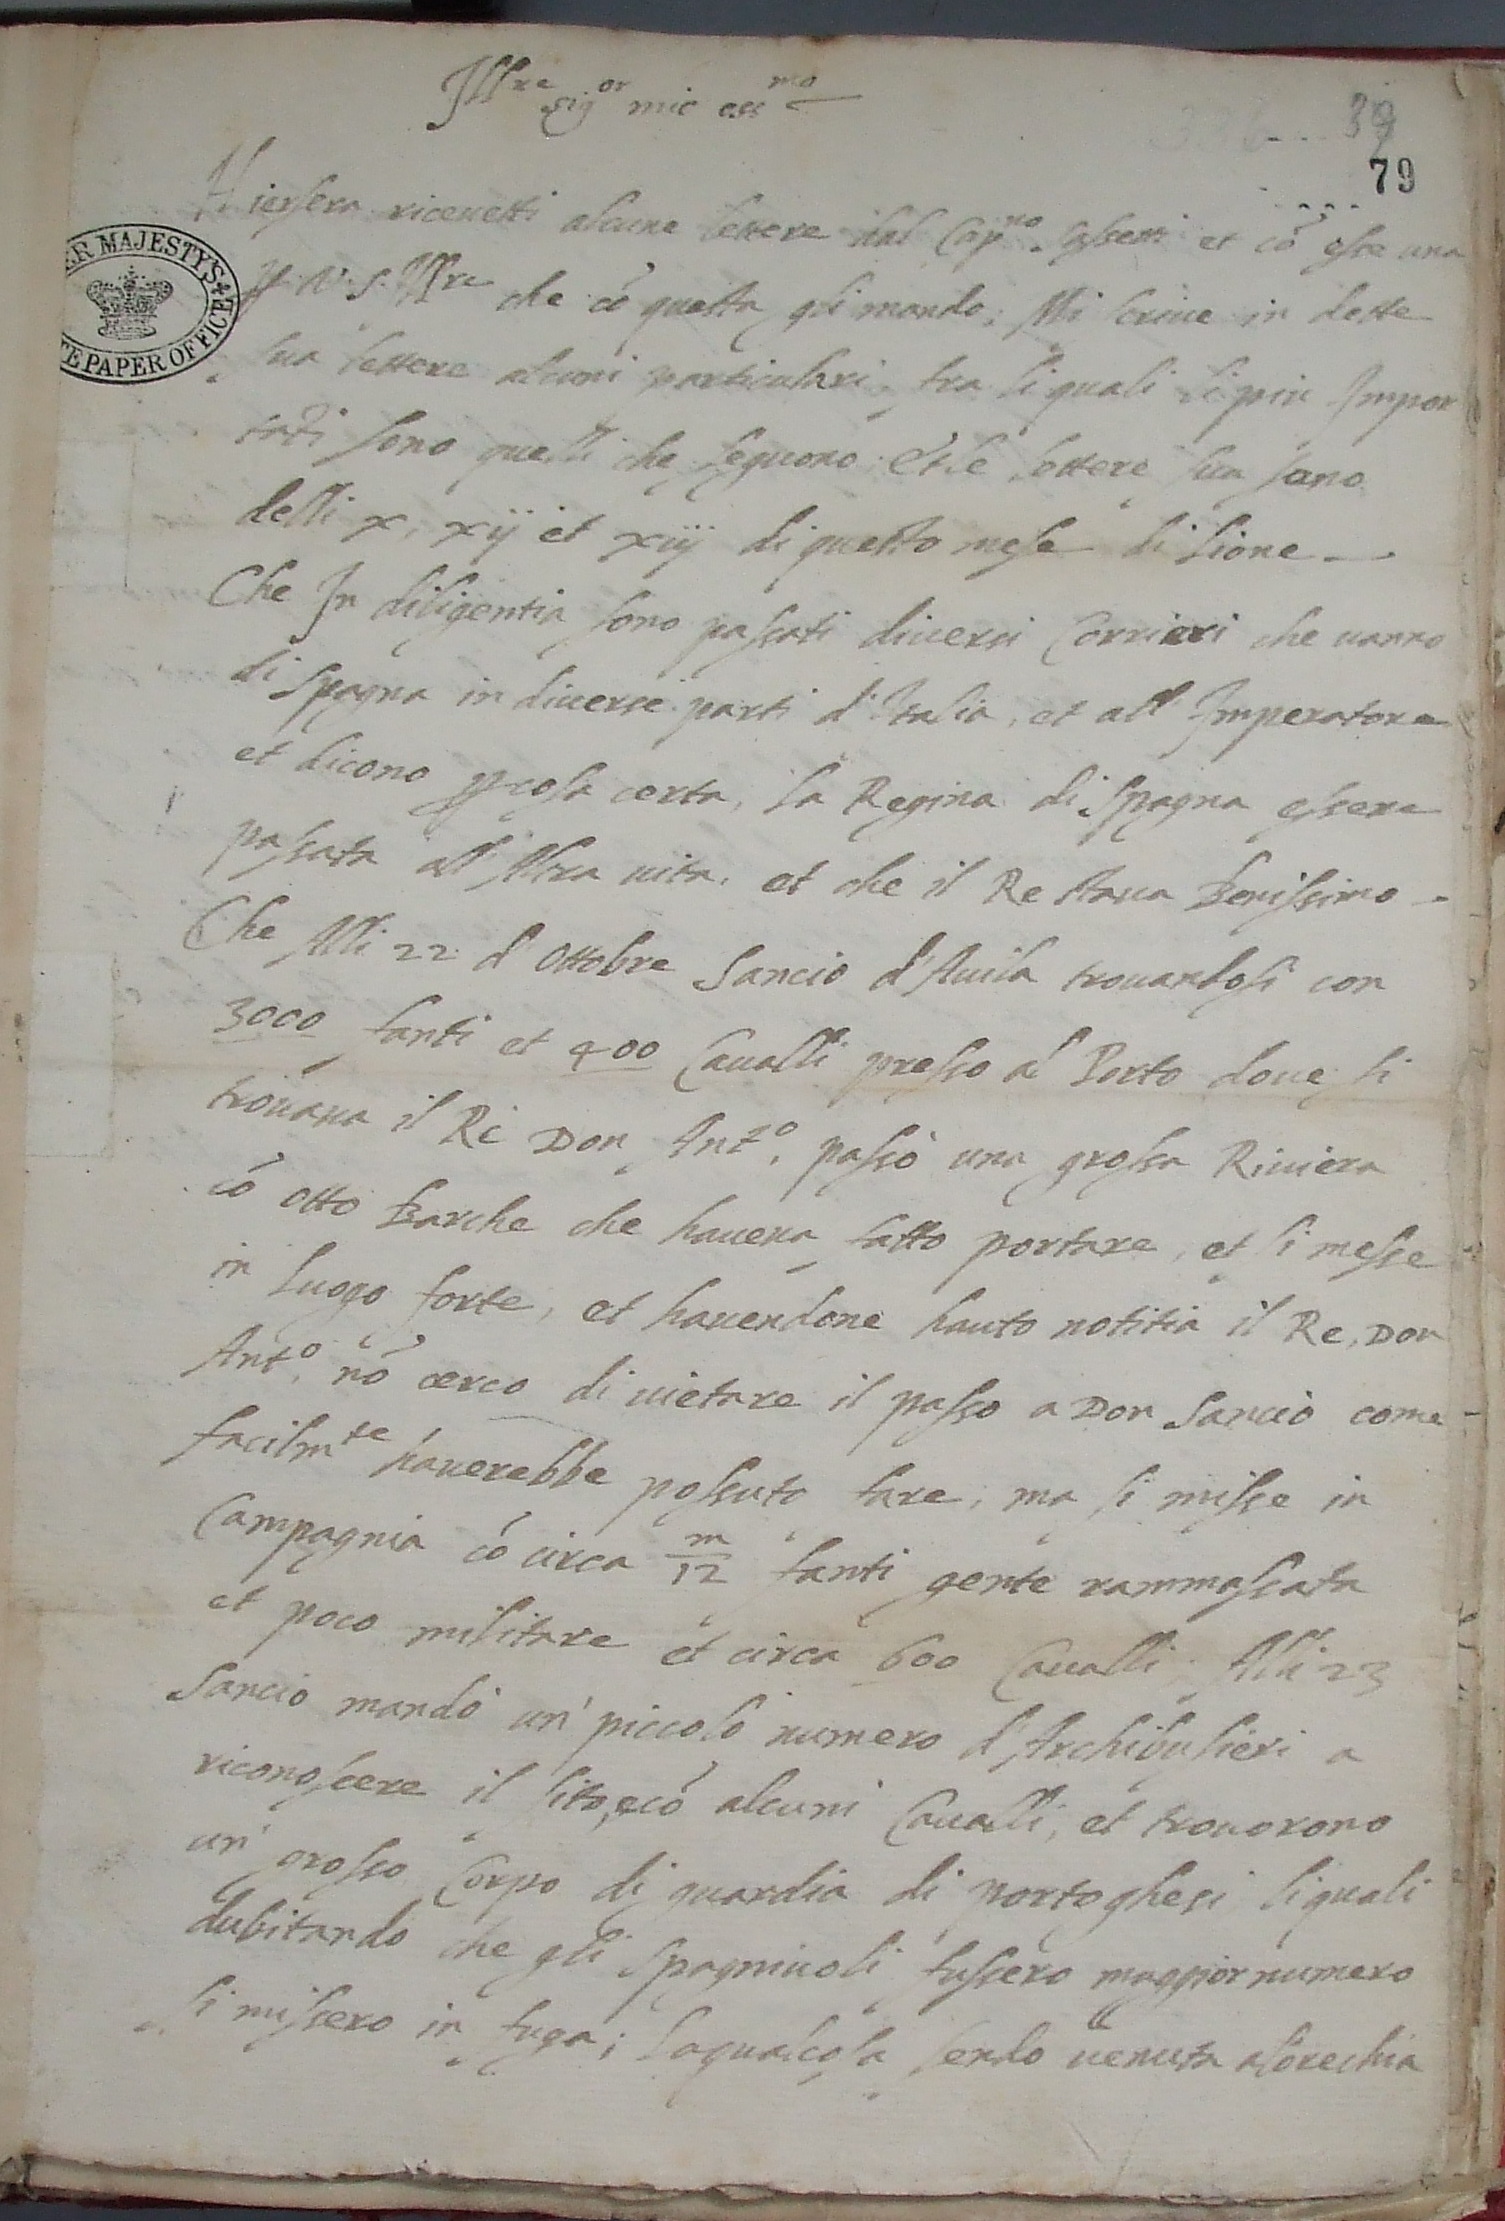 Ill^re sig^or mio oss^mo
39
79
HER MAJESTY'S
STATE PAPER OFFICE
Hiersera riceuetti alcune lettere dal Cap^no et cõ esse una
p V. S. Ill^re che cõ questa gli mando; Mi scriue in dette
sua lettere alcuni particulari, tra li quali li piu Impor
tãti sono quelli che seguono; Et le lettere sua sono
delli x, xij et xiij di questo mese di Lione
Che In diligentia sono passati diuersi Corrieri che uanno
di Spagna in diuerse parti d'Italia, et all Imperatore
et dicono p cosa certa, la Regina di Spagna essere
passata all Altra uita, et che il Re staua Benissimo
Che Alli 22 d'Ottobre Sancio d'Auila trouandosi con
3000 fanti et 400 Caualli presso al Porto doue si
trouaua il Re Don Ant^o, passò una grossa Riuiera
cõ otto Barche che haueua fatto portare, et si messe
in luogo forte, et hauendone hauto notitia il Re, Don
Ant^o, nõ cerco di uietare il passo a Don Sancio come
facilm^te hauerebbe possuto fare, ma si misse in
Campagnia cõ circa m/12 fanti gente rammassata
et poco militare et circa 600 Caualli; Alli 23
Sancio mandò un' piccolo numero d'Archibusieri a
riconoscere il sito, e cõ alcuni Caualli, et trouorono
un' grosso Corpo di guardia di portoghesi liquali
dubitando che gli Spagniuoli fussero maggior numero
si missero in fuga; laqualcosa sendo uenuta alorechia